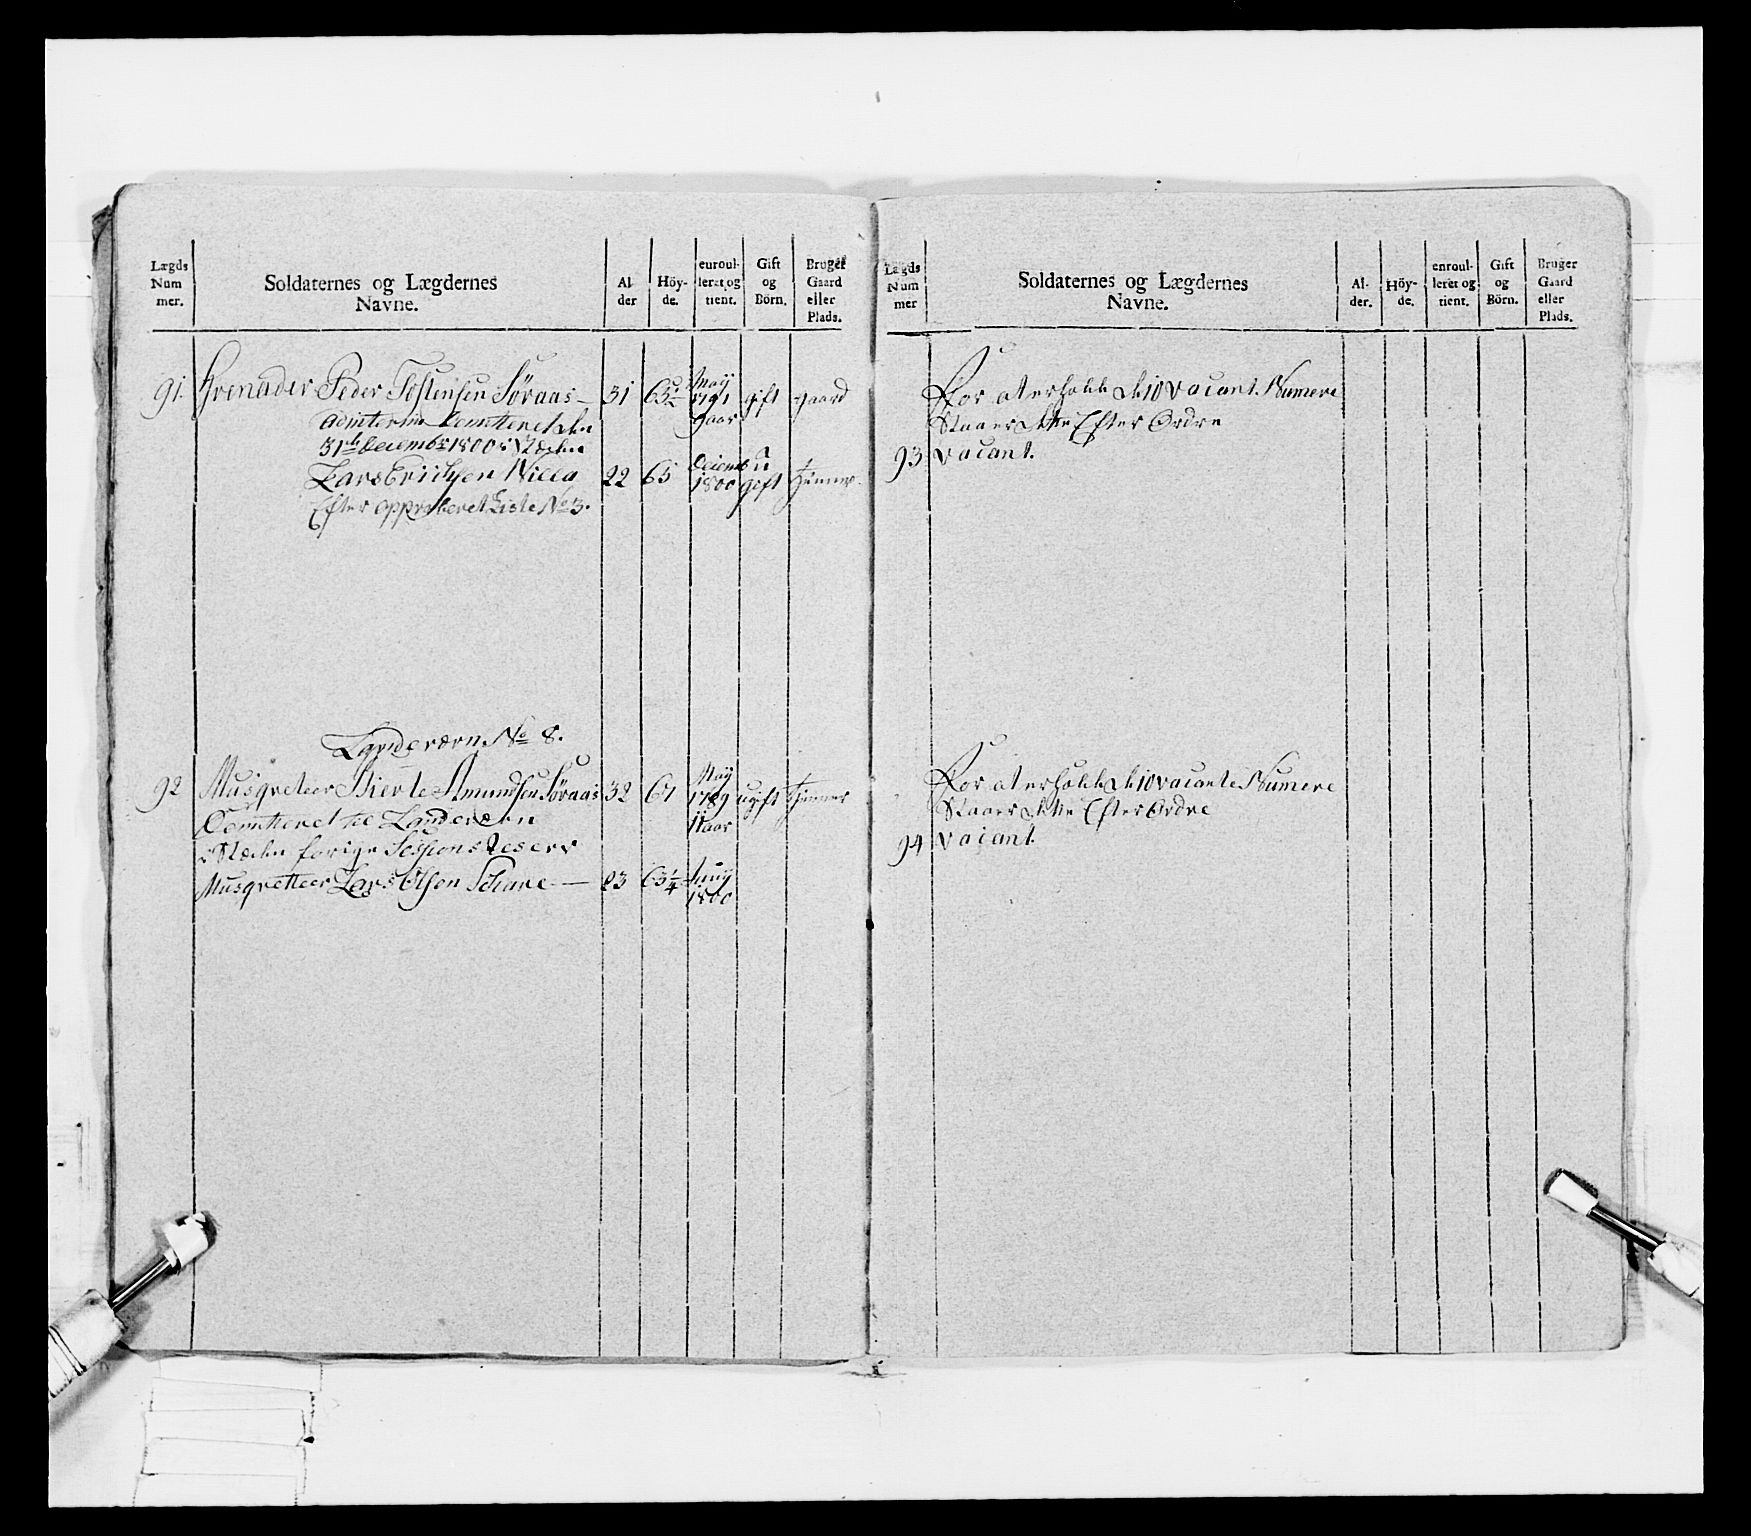 Lægds Num mer.
Soldaternes og Lægdernes Navne.
Al der
Höy- de.
enroul- leret og tient.
Gift og Börn.
Bruger Gaard eller Plads.
91. Grenader Peder Tostensen Søraas — 31 63 1/2 May 1791 gift gaard
ad interim Demitteret den
31te decembr 1800 i Steden
Lars Erichsen Nilla 22 65 Decemb 1800 ugift tienner
Efter approberet Liste No 3.
Landeværn No 8.
92 Musqveteer Amundsen Søraas 32 67 May 1789 11 aar ugift tienner
Demitteret til Landeværn
i Steden forige Sessions Reserv
Musqvetteer Lars Olsen — 23 63 1/4 1800
Lægds Num mer
Soldaternes og Lægdernes Navne.
Al- der.
Höy- de.
enroul- leret og tient.
Gift og Börn.
Bruger Gaard eller Plads.
For at erholde de 10 vacante Numere
Staaer dette Efter Ordre
93 vacant.
For at erholde de 10 vacante Numere
Staaer dette Efter Ordre
94 vacant.